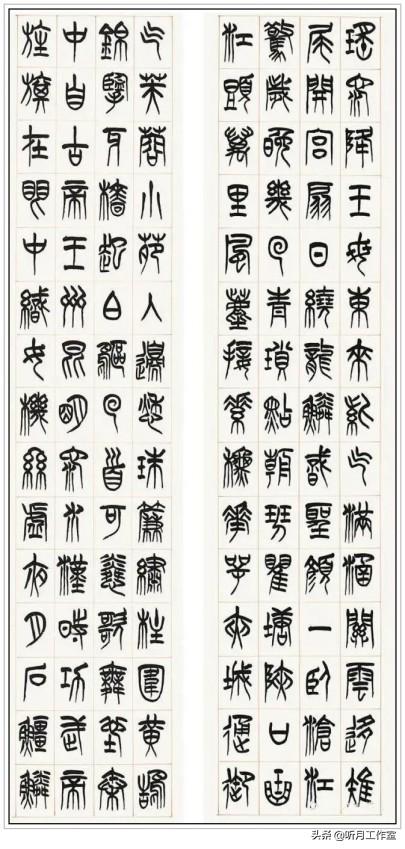 瑤池降王母東來紫气滿函關雲移雉
尾開宮扇日繞龍鱗識聖顏一臥滄江
驚歲晚幾回青瑣點朝班瞿塘陜口曲
江頭萬里風煙接素秋華萼夾城通御
气芙蓉小苑入邊愁珠簾繡柱圍黃鵠
錦纜牙檣起白鷗回首可憐歌舞地秦
中自古帝王州昆明池水漢時功武帝
旌旗在眼中織女機絲虛夜月石鯨鱗
头条 @听月工作室